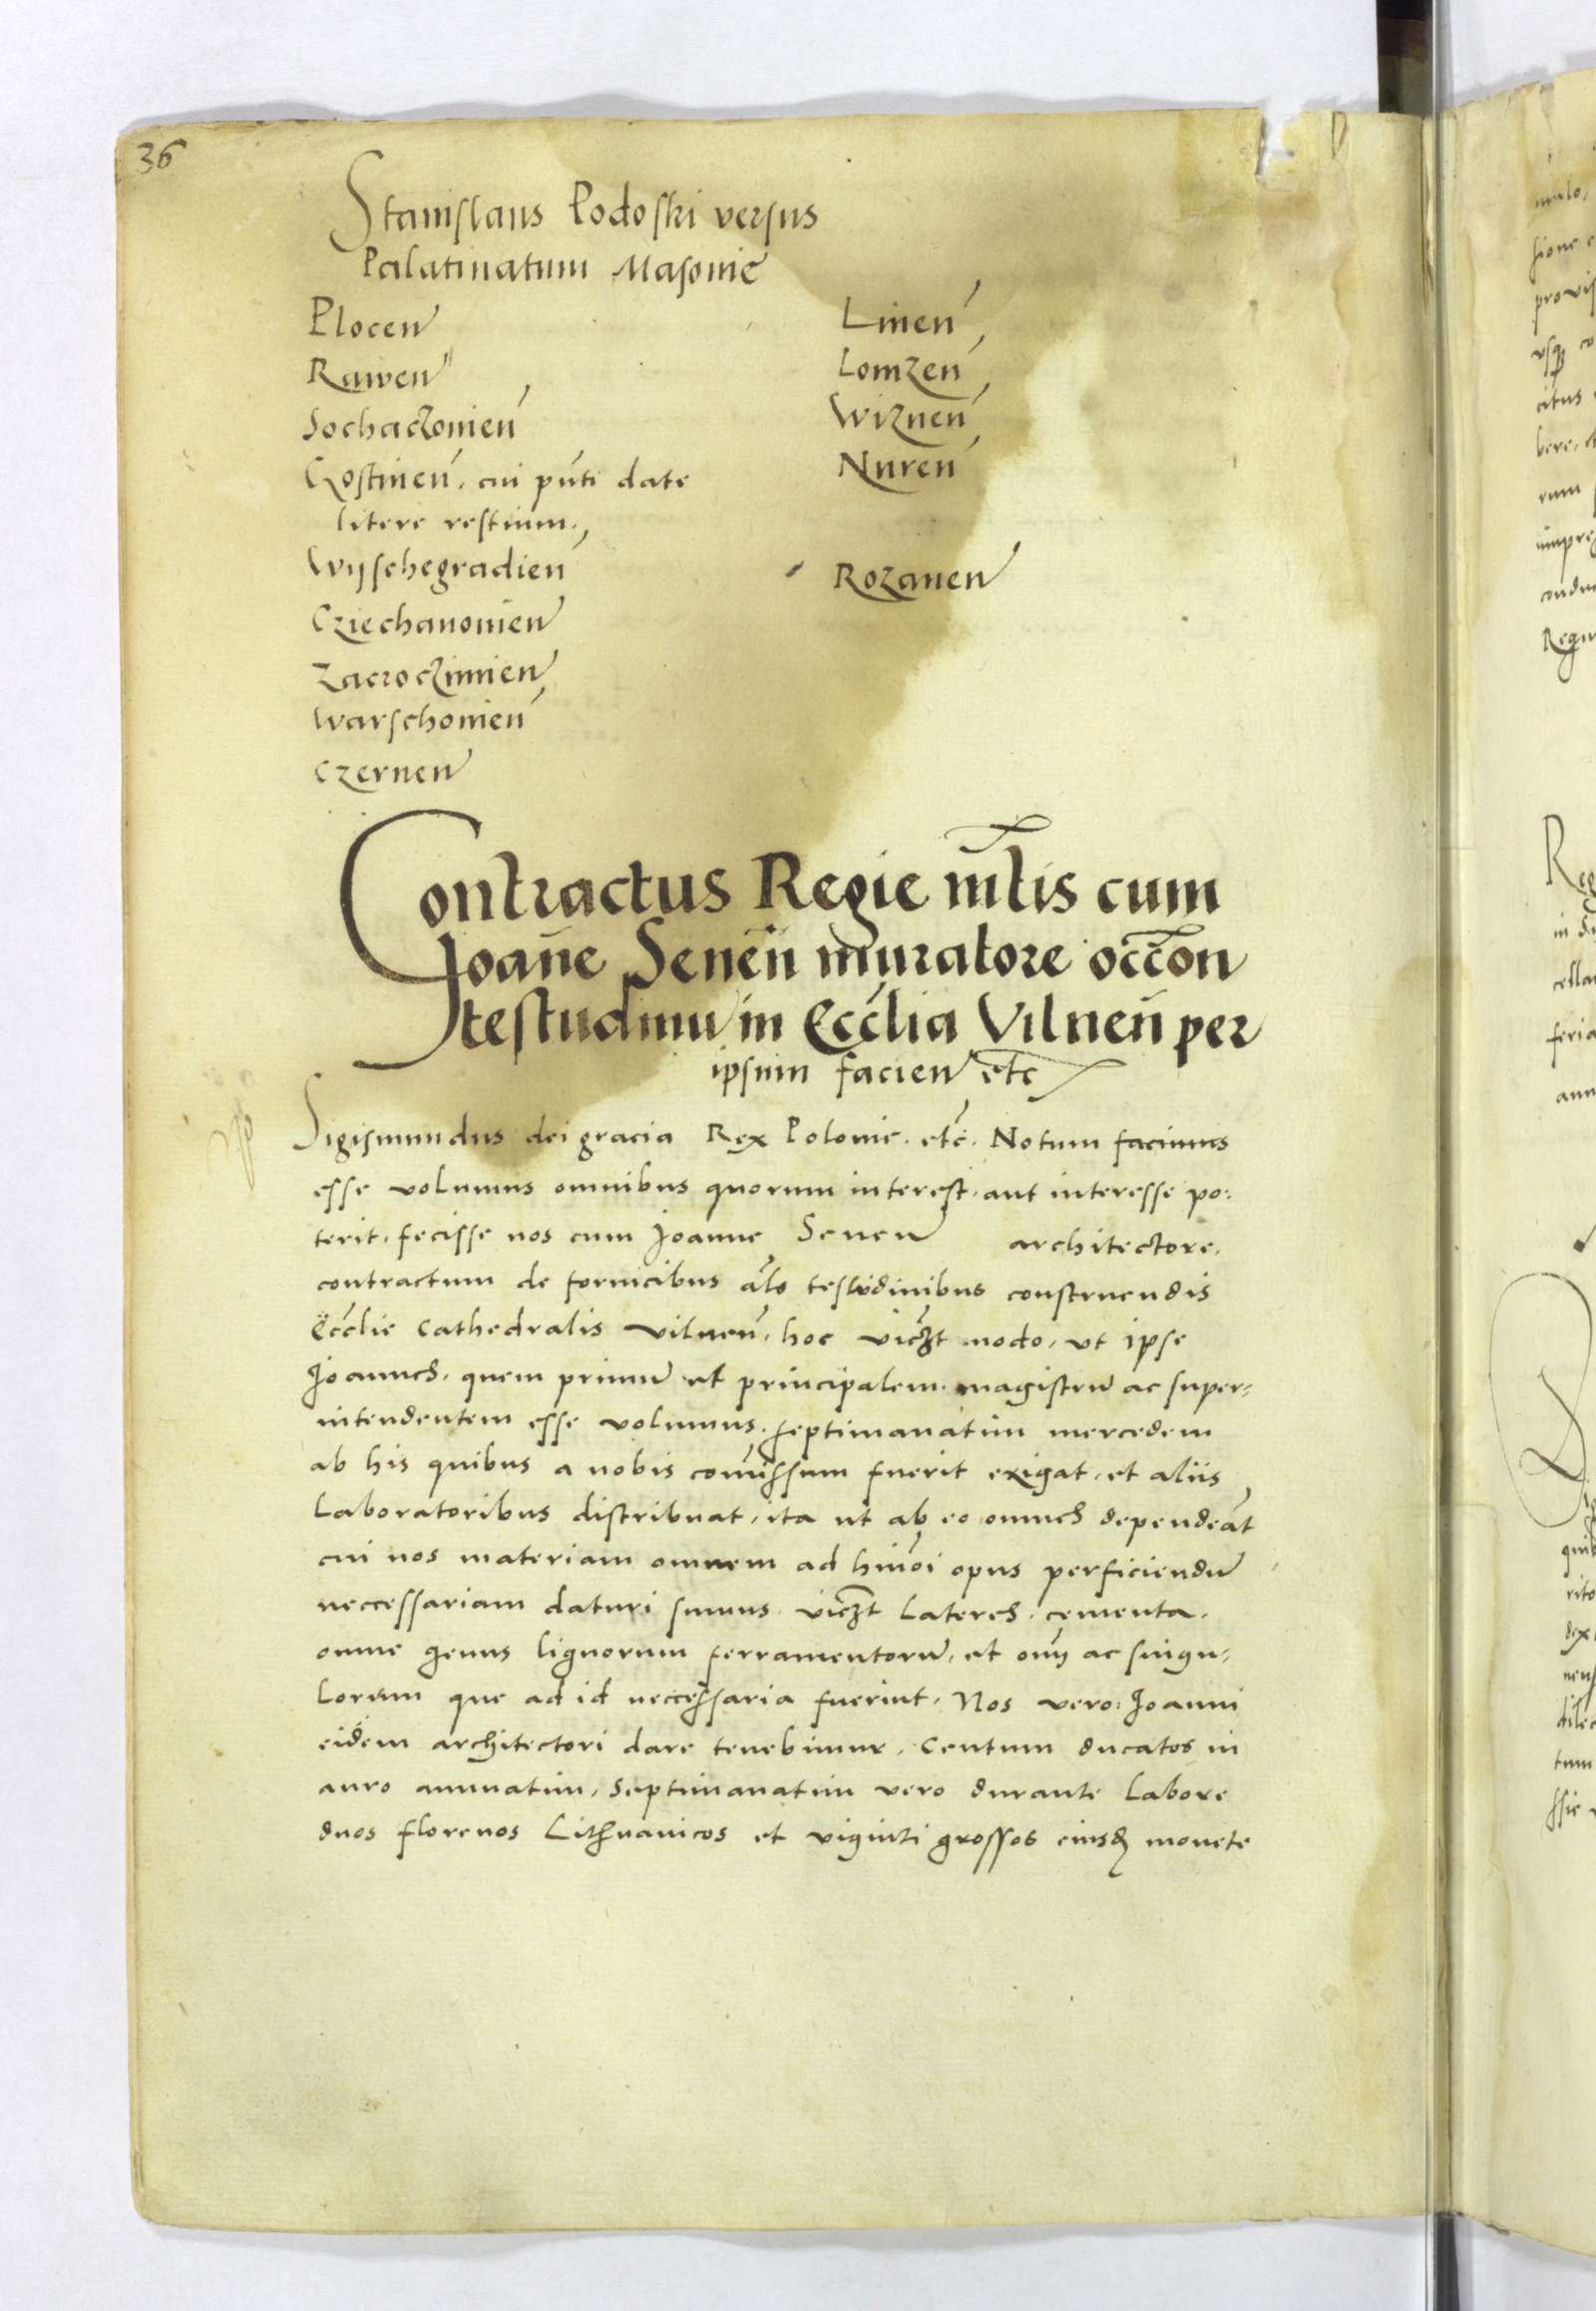 36
Stanislaus Podoski versus
Palatinatum Masouie
Plocen̄
Rawen̄
Sochaczouien̄
Gostinen̄. cui pn̄ti date
litere restium.
Wijschegradien̄
Cziechanouien̄
Zacroczimien̄
Warschouien̄
Czernen̄
Liuen̄
Lomzen̄
Wiznen̄
Nuren̄
Rozanen̄
Contractus Regie mt̄is cum
Joan̄e Senen̄ muratore occ̄on
testudinū in Eccl̄ia Vilnen̄ per
ipsum facien̄ etc
Sigismundus dei gracia Rex Polonie. etc̄. Notum facimus
esse volumus omnibus quorum interest. aut interesse po:
terit. fecisse nos cum Joanne Senen̄ architectore.
contractum de fornicibus al̄s testudinibus construendis
Eccl̄ie Cathedralis vilnen̄. hoc viczt modo. vt ipse
Joannes. quem primū et principalem magistrū ac super-
intendentem esse volumus. septimanatim mercedem
ab his quibus a nobis com̄issum fuerit exigat. et aliis
Laboratoribus distribuat. ita ut ab eo omnes dependeāt
cui nos materiam omnem ad hm̄oi opus perficiendū
neccessariam daturi sumus. viczt Lateres. cementa.
omne genus lignorum ferramentorū. et om̄ ac singu-
Lorum que ad id neccessaria fuerint. Nos vero: Joanni
eidem architectori dare tenebimur. Centum ducatos in
auro annuatim. Septimanatim vero durante Labore
duos florenos Lithuanicos et viginti grossos eiusd monete